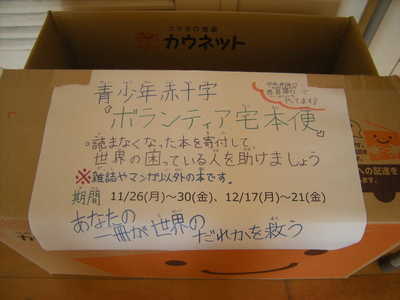 カウネット
青少年赤十字
『ボランティア宅本便』
・読まなくなった本を寄付して、
世界の困っている人を助けましょう
※雑誌やマンガ以外の本です。
期間 11/26(月)~30(金)、12/17(月)~21(金)
あなたの
一冊が世界の
だれかを救う
への配達を